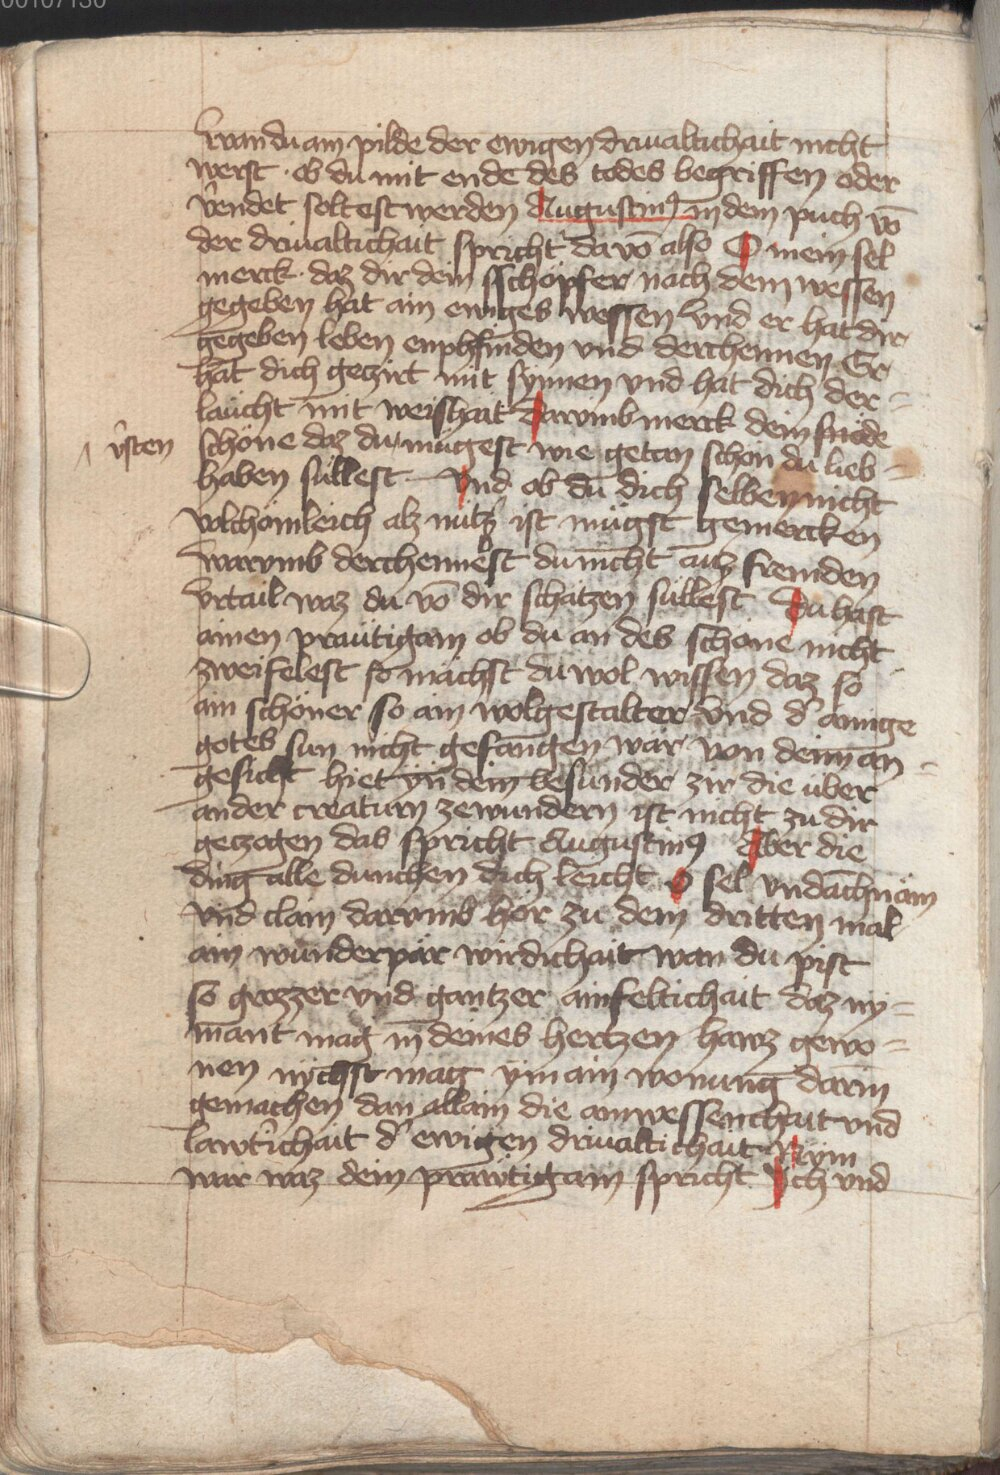 00107130
wan du am pilde der ewigen driualtichait nicht
werst · ob du mit ende des todes begriffen oder
vendet soltest werden Augustin9 in dem puch vō
der driualtichait spricht davō also O mein sel
merck · daz dir dem sschöpfer nach dem wessen
gegeben hat ain ewiges wessen vnd er hat dir
gegeben leben enphfinden vnd derchennen Er
hat dich geczirt mit synnen vnd hat dich der =
laucht mit weishait darvmb merck dein
schöne daz du mügest wie getan schön du lieb =
v̂sten
haben süllest — Vnd ob du dich selben nicht
volchömleich alz nütz ist mügst gemercken
warvmb derchennest du nicht auz fremden
vrtail waz du vō dir schätzen süllest Du hast
ainen präutigam ob du an des schöne nicht
zweifelest so mächst du wol wissen daz so
ain schöner so ain wolgestalter vnd d' ainige
gotes sun nicht gefangen wär von deinn an =
gesicht hiet yn dein besunder zir die über
ander creaturn zewundern ist nicht zu dir
geczogen das spricht Augustin9 Aber die
ding alle dunchen dich leicht O sel vndachnäm
vnd clain darvmb hör zu dem dritten mal
ain wunderpär wirdichait wan du pist
so grozzer vnd gantzer ainfeltichait daz ny =
mant mag in deines hertzen hawz gewo =
nen nychst mag ym ain wonung darin
gemachen dan allain die anwessenchait vnd
lawt'chait d' ewigen driualtichait Nym
war waz dein präwtigam spricht Ich vnd